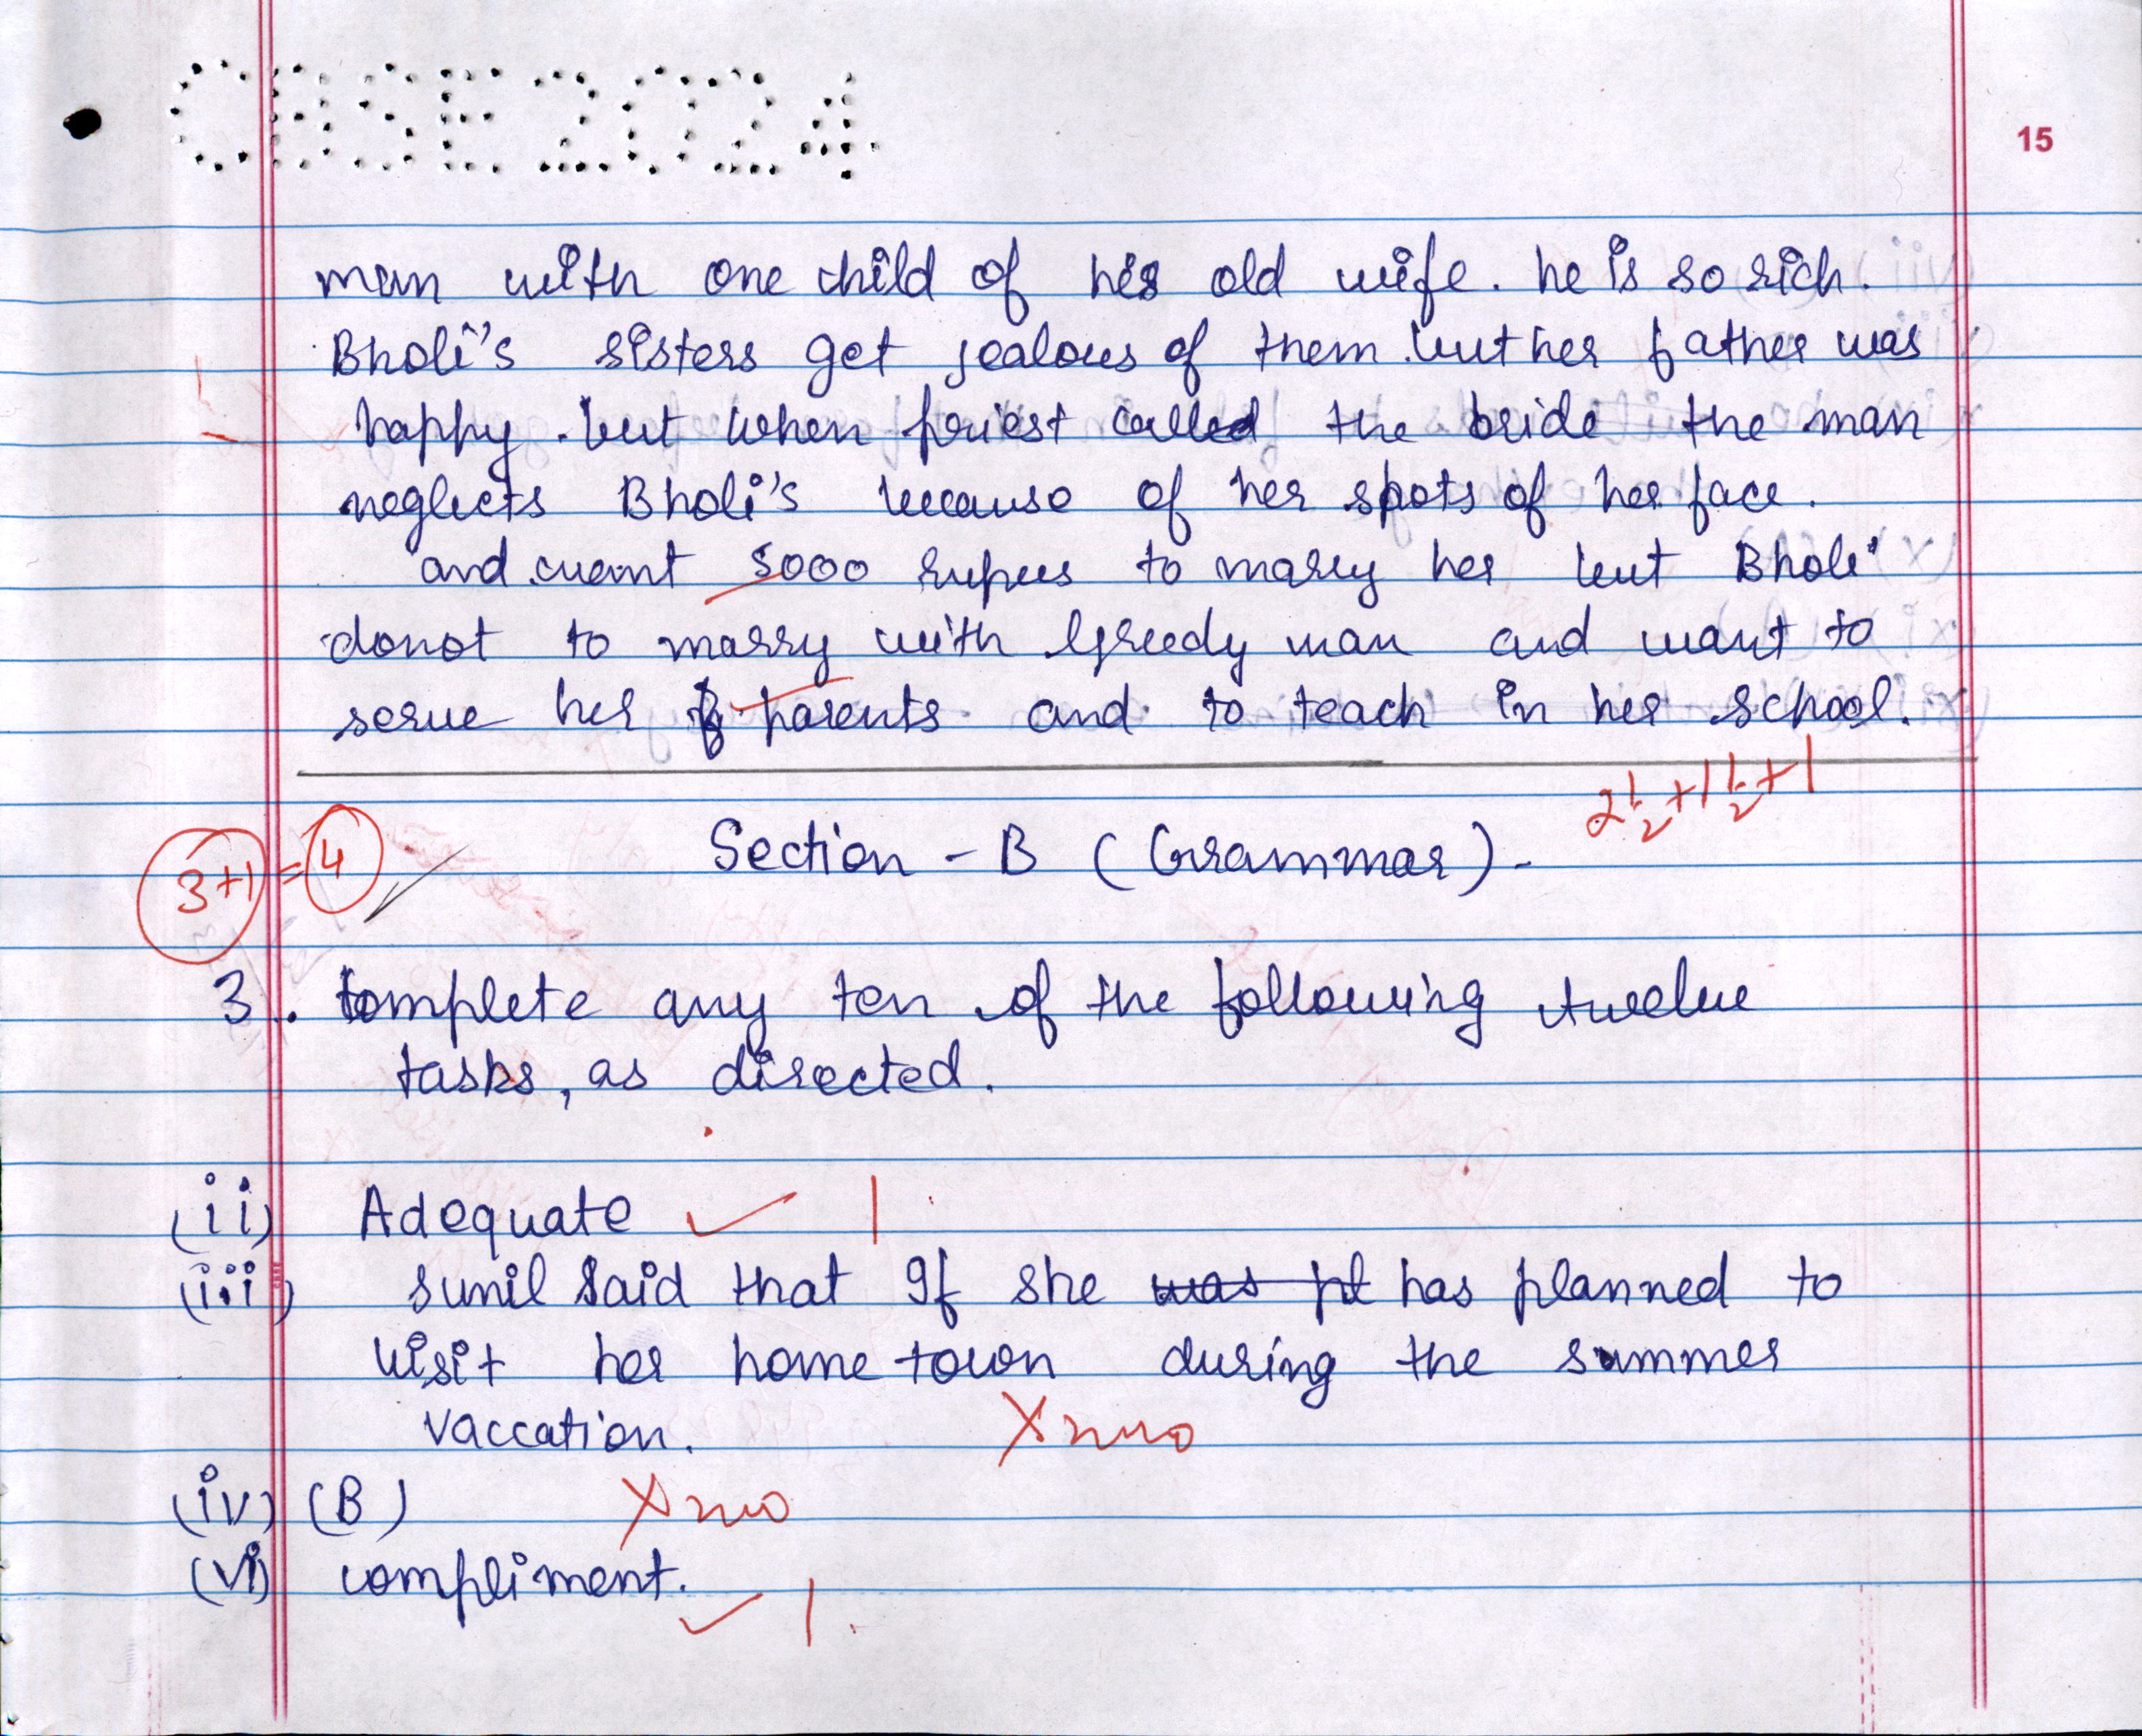 CBSE 2024
15
man with one child of his old wife. he is so rich.
Bholi's sisters get jealous of them. but her father was
happy. but when priest called the bride the man
neglects Bholi's because of her spots of her face.
and want 5000 rupees to marry her but Bholi
donot to marry with Greedy man and want to
serve her parents and to teach in her school.
2 1/2 + 1 1/2 + 1
3+1 = 4
Section - B (Grammar) -
3. Complete any ten of the following twelve
tasks, as directed.
(ii) Adequate ✓ 1
(iii) sunil said that If she was pl has planned to
visit her home town during the summer
vaccation. X
(iv) (B) X
(vi) compliment. ✓ 1